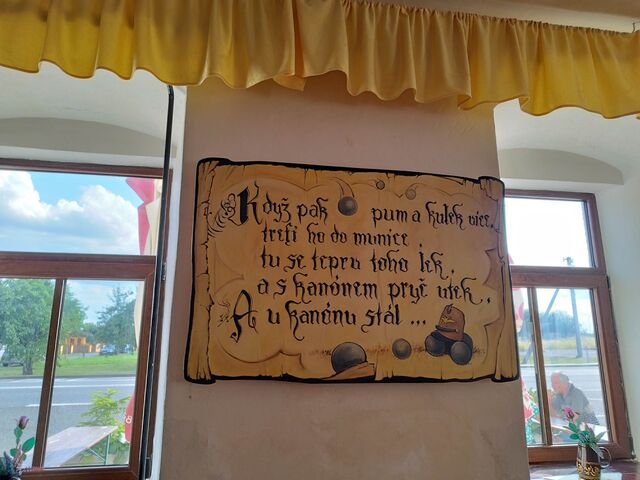 Když pak pum a kulek více,
trefí ho do munice
tu se tepru toho lek,
a s kanónem pryč utek,
A u kanónu stál ...